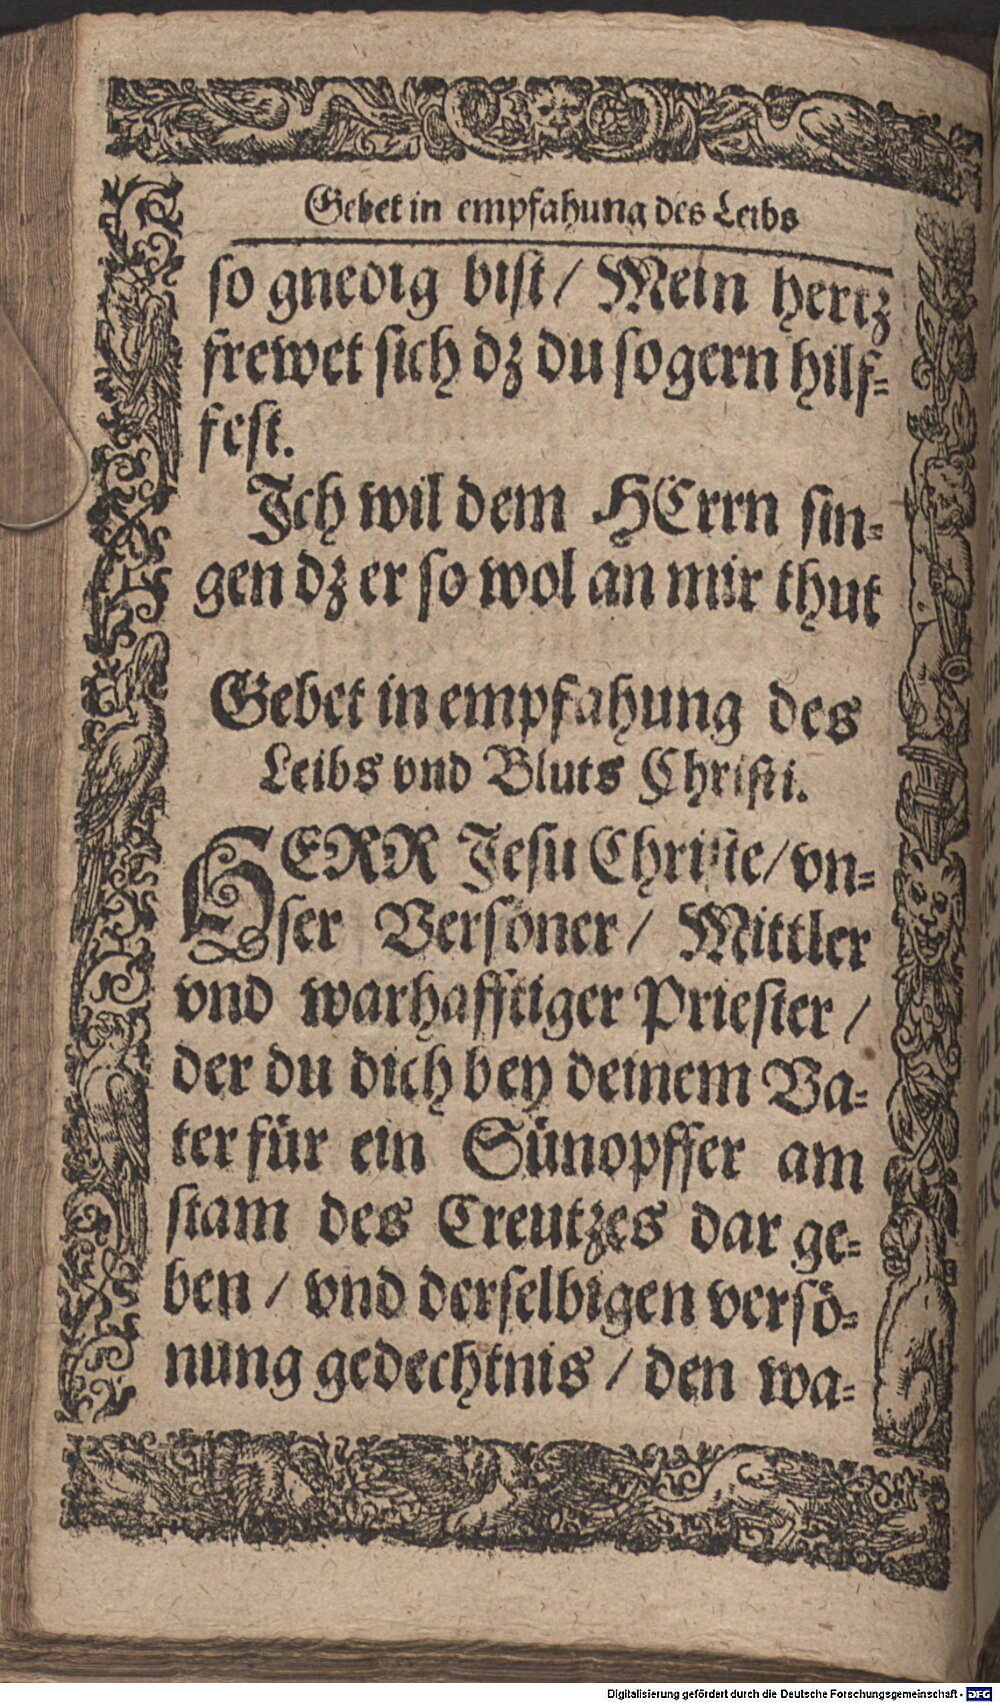 Gebet in empfahung des Leibs
so gnedig bist / Mein hertz
frewet sich dz du so gern hilf-
fest.
Ich wil dem HErrn sin-
gen dz er so wol an mir thut
Gebet in empfahung des
Leibs vnd Bluts Christi.
HERR Jesu Christe / vn-
ser Versöner / Mittler
vnd warhafftiger Priester /
der du dich bey deinem Va-
ter für ein Sünopffer am
stam des Creutzes dar ge-
ben / vnd derselbigen versö-
nung gedechtnis / den wa-
Digitalisierung gefördert durch die Deutsche Forschungsgemeinschaft - DFG